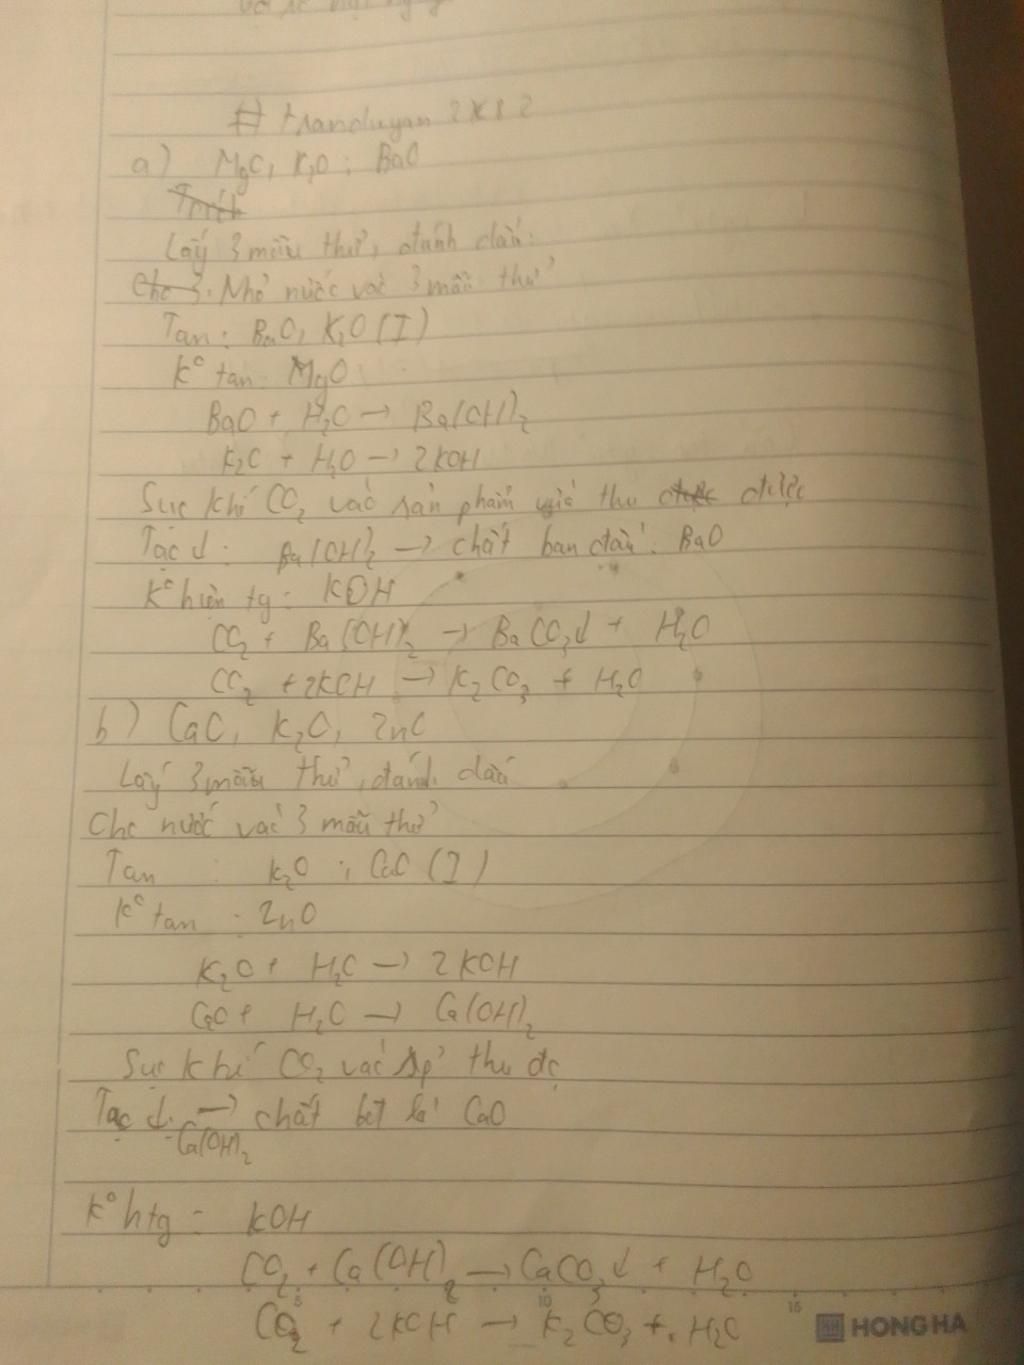 # tranduyan 2K82
a) MgO, K2O; BaO
Lấy 3 mẫu thử, đánh dấu.
Nhỏ nước vào 3 mẫu thử
Tan: BaO, K2O (I)
K° tan: MgO
BaO + H2O → Ba(OH)2
K2O + H2O → 2KOH
Sục khí CO2 vào sản phẩm vừa thu được
Tạo ↓: Ba(OH)2 → chất ban đầu: BaO
K° hiện tg: KOH
CO2 + Ba(OH)2 → BaCO3↓ + H2O
CO2 + 2KOH → K2CO3 + H2O
b) CaO, K2O, ZnO
Lấy 3 mẫu thử, đánh dấu
Cho nước vào 3 mẫu thử
Tan : K2O ; CaO (I)
K° tan : ZnO
K2O + H2O → 2KOH
CaO + H2O → Ca(OH)2
Sục khí CO2 vào sp thu đc
Tạo ↓: → chất bđ là CaO
Ca(OH)2
K° htg : KOH
CO2 + Ca(OH)2 → CaCO3↓ + H2O
5 10 15
CO2 + 2KOH → K2CO3 + H2O
HONG HA